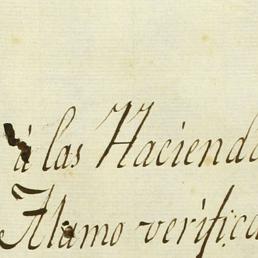 á las Haciend
Alamo verifica